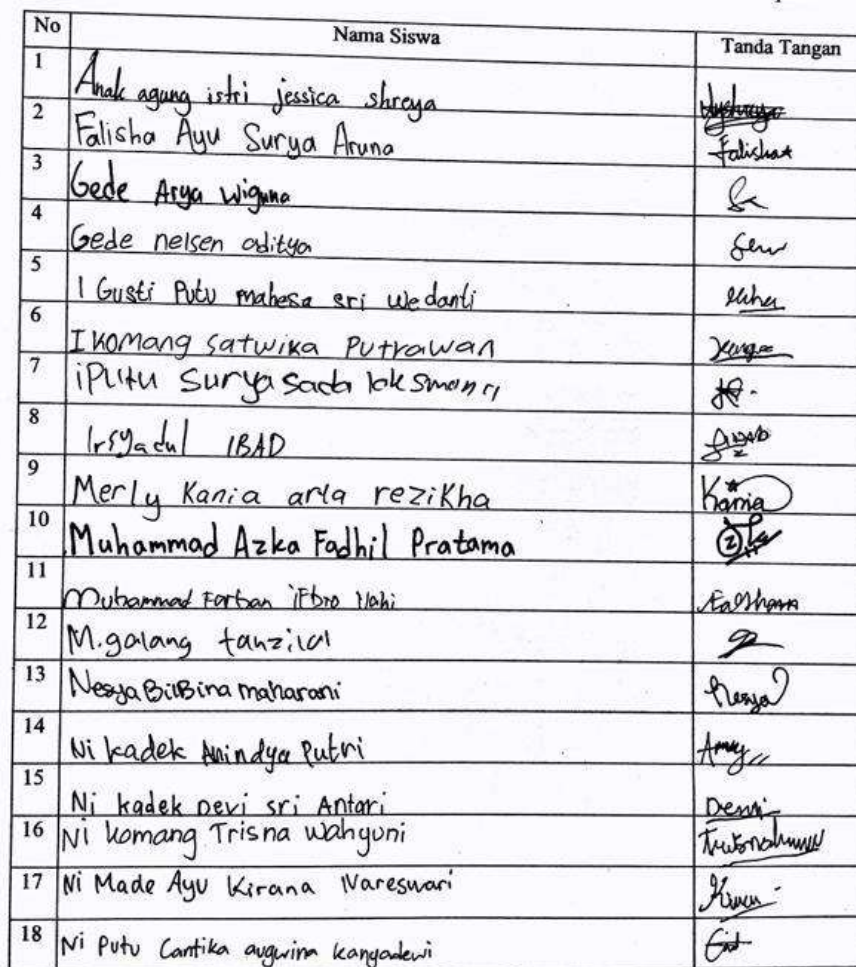 No Nama Siswa Tanda Tangan
1 Anak agung istri jessica shreya
2 Falisha Ayu Surya Aruna Falisha
3 Gede Arya Wiguna
4 Gede nelsen aditya
5 I Gusti Putu mahesa sri wedanti
6 I Komang satwika Putrawan
7 i Putu Surya sada laksmana
8 Irsyadul IBAD
9 Merly Kania arla rezikha Kania
10 Muhammad Azka Fadhil Pratama
11 Muhammad Farhan iFbro Ilahi
12 M.galang tanzilal
13 Nesya BilBina maharani Nesya
14 Ni kadek Anindya Putri
15 Ni kadek Devi sri Antari Devi
16 Ni komang Trisna wahyuni
17 Ni Made Ayu Kirana Nareswari
18 Ni Putu Cantika augwina kanyadewi